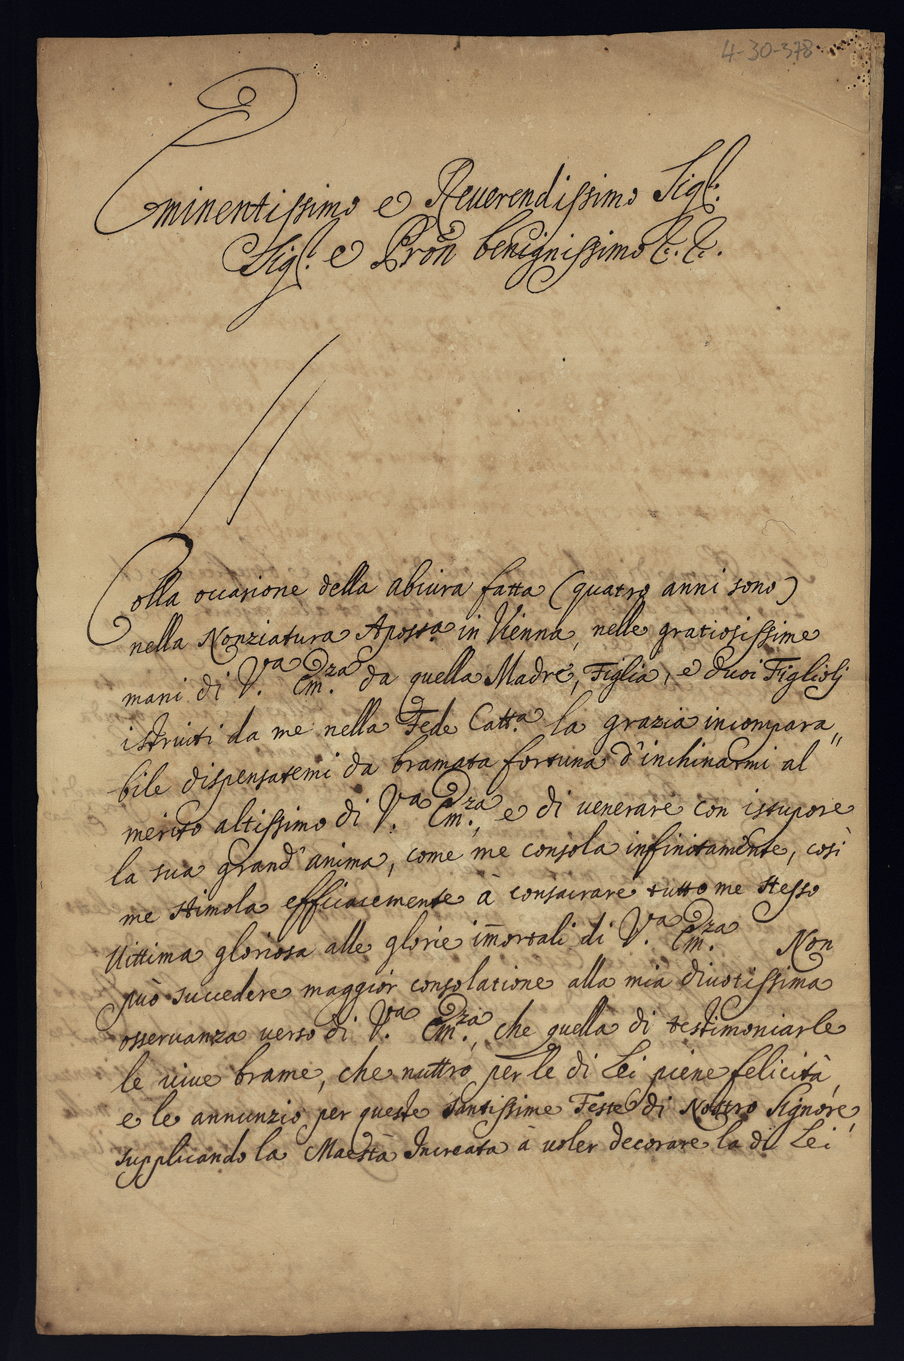 4-30-378
Eminentissimo e Reuerendissimo Sigr:
Sigr: e Pron benignissimo &c: &c.
Colla occasione della abiura fatta (quatro anni sono)
nella Nonziatura Aposta in Vienna, nelle gratiosissime
mani di V.a Em.za da quella Madre, Figlia, e duoi Figliolj
istruiti da me nella Fede Catt.a la grazia incompara„
bile dispensatemi da bramata fortuna d'inchinarmi al
merito altissimo di V.a Em.za, e di venerare con istupore
la sua grand'anima, come me consola infinitamente, così
me stimola efficacemente à consacrare tutto me stesso
Vittima gloriosa alle glorie im̄ortali di V.a Em.za Non
può succedere maggior consolatione alla mia diuotissima
osseruanza verso di V.a Em.za, che quella di testimoniarle
le viue brame, che nuttro per le di Lei piene felicità,
e le annunzio per queste santissime Feste di Nostro Signore,
supplicando la Maestà Increata à voler decorare la di Lei